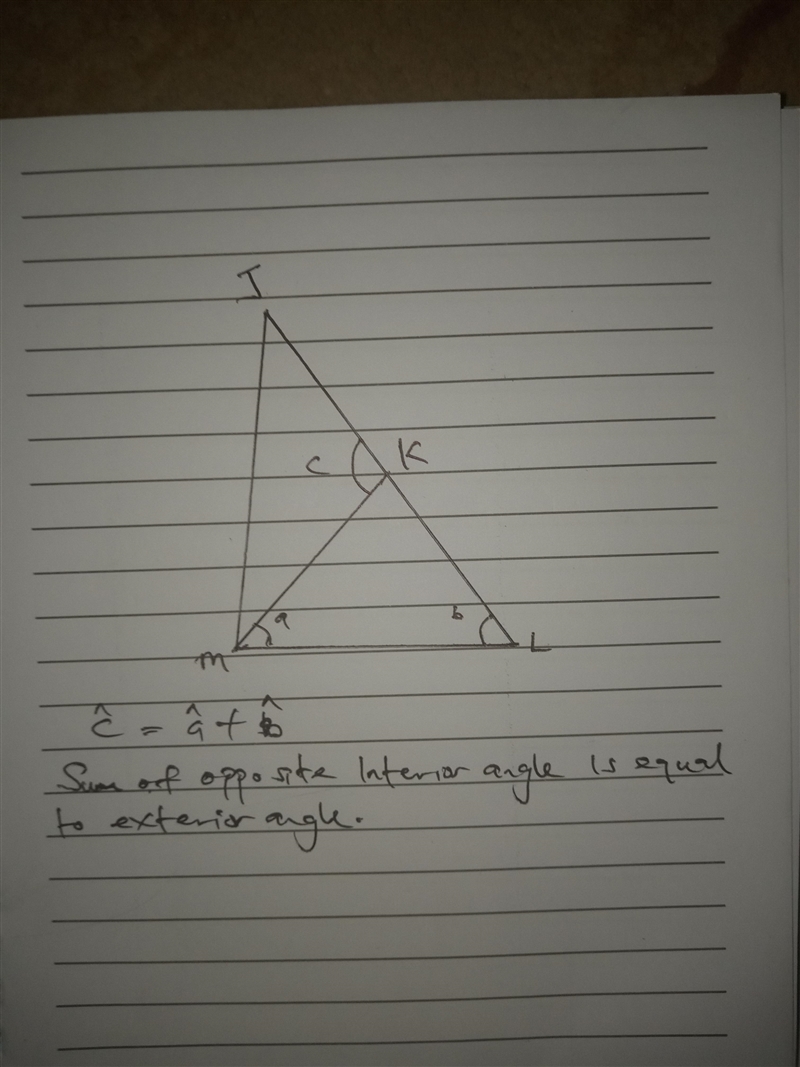 J
C K
a b
M L
ĉ = â + b̂
Sum of opposite Interior angle is equal
to exterior angle.